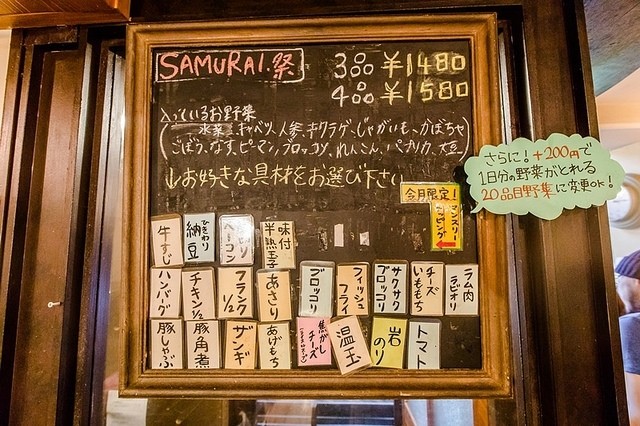 SAMURAI.祭
3品 ¥1480
4品 ¥1580
入っているお野菜
(水菜、キャベツ、人参、キクラゲ、じゃがいも、かぼちゃ
ごぼう、なす、ピーマン、ブロッコリ、れんこん、パプリカ、大豆)
↓お好きな具材をお選び下さい
さらに!+200円で
1日分の野菜がとれる
20品目野菜に変更OK!
今月限定!
マンスリー
トッピング
牛すじ
ひきわり
納豆
ベーコン
味付
半熟玉子
ハンバーグ
チキン1/2
フランク
1/2
あさり
ブロッコリ
フィッシュ
フライ
サクサク
ブロッコリ
チーズ
いももち
ラム肉
ラビオリ
豚しゃぶ
豚角煮
ザンギ
あげもち
焦がし
チーズ
温玉
岩のり
トマト